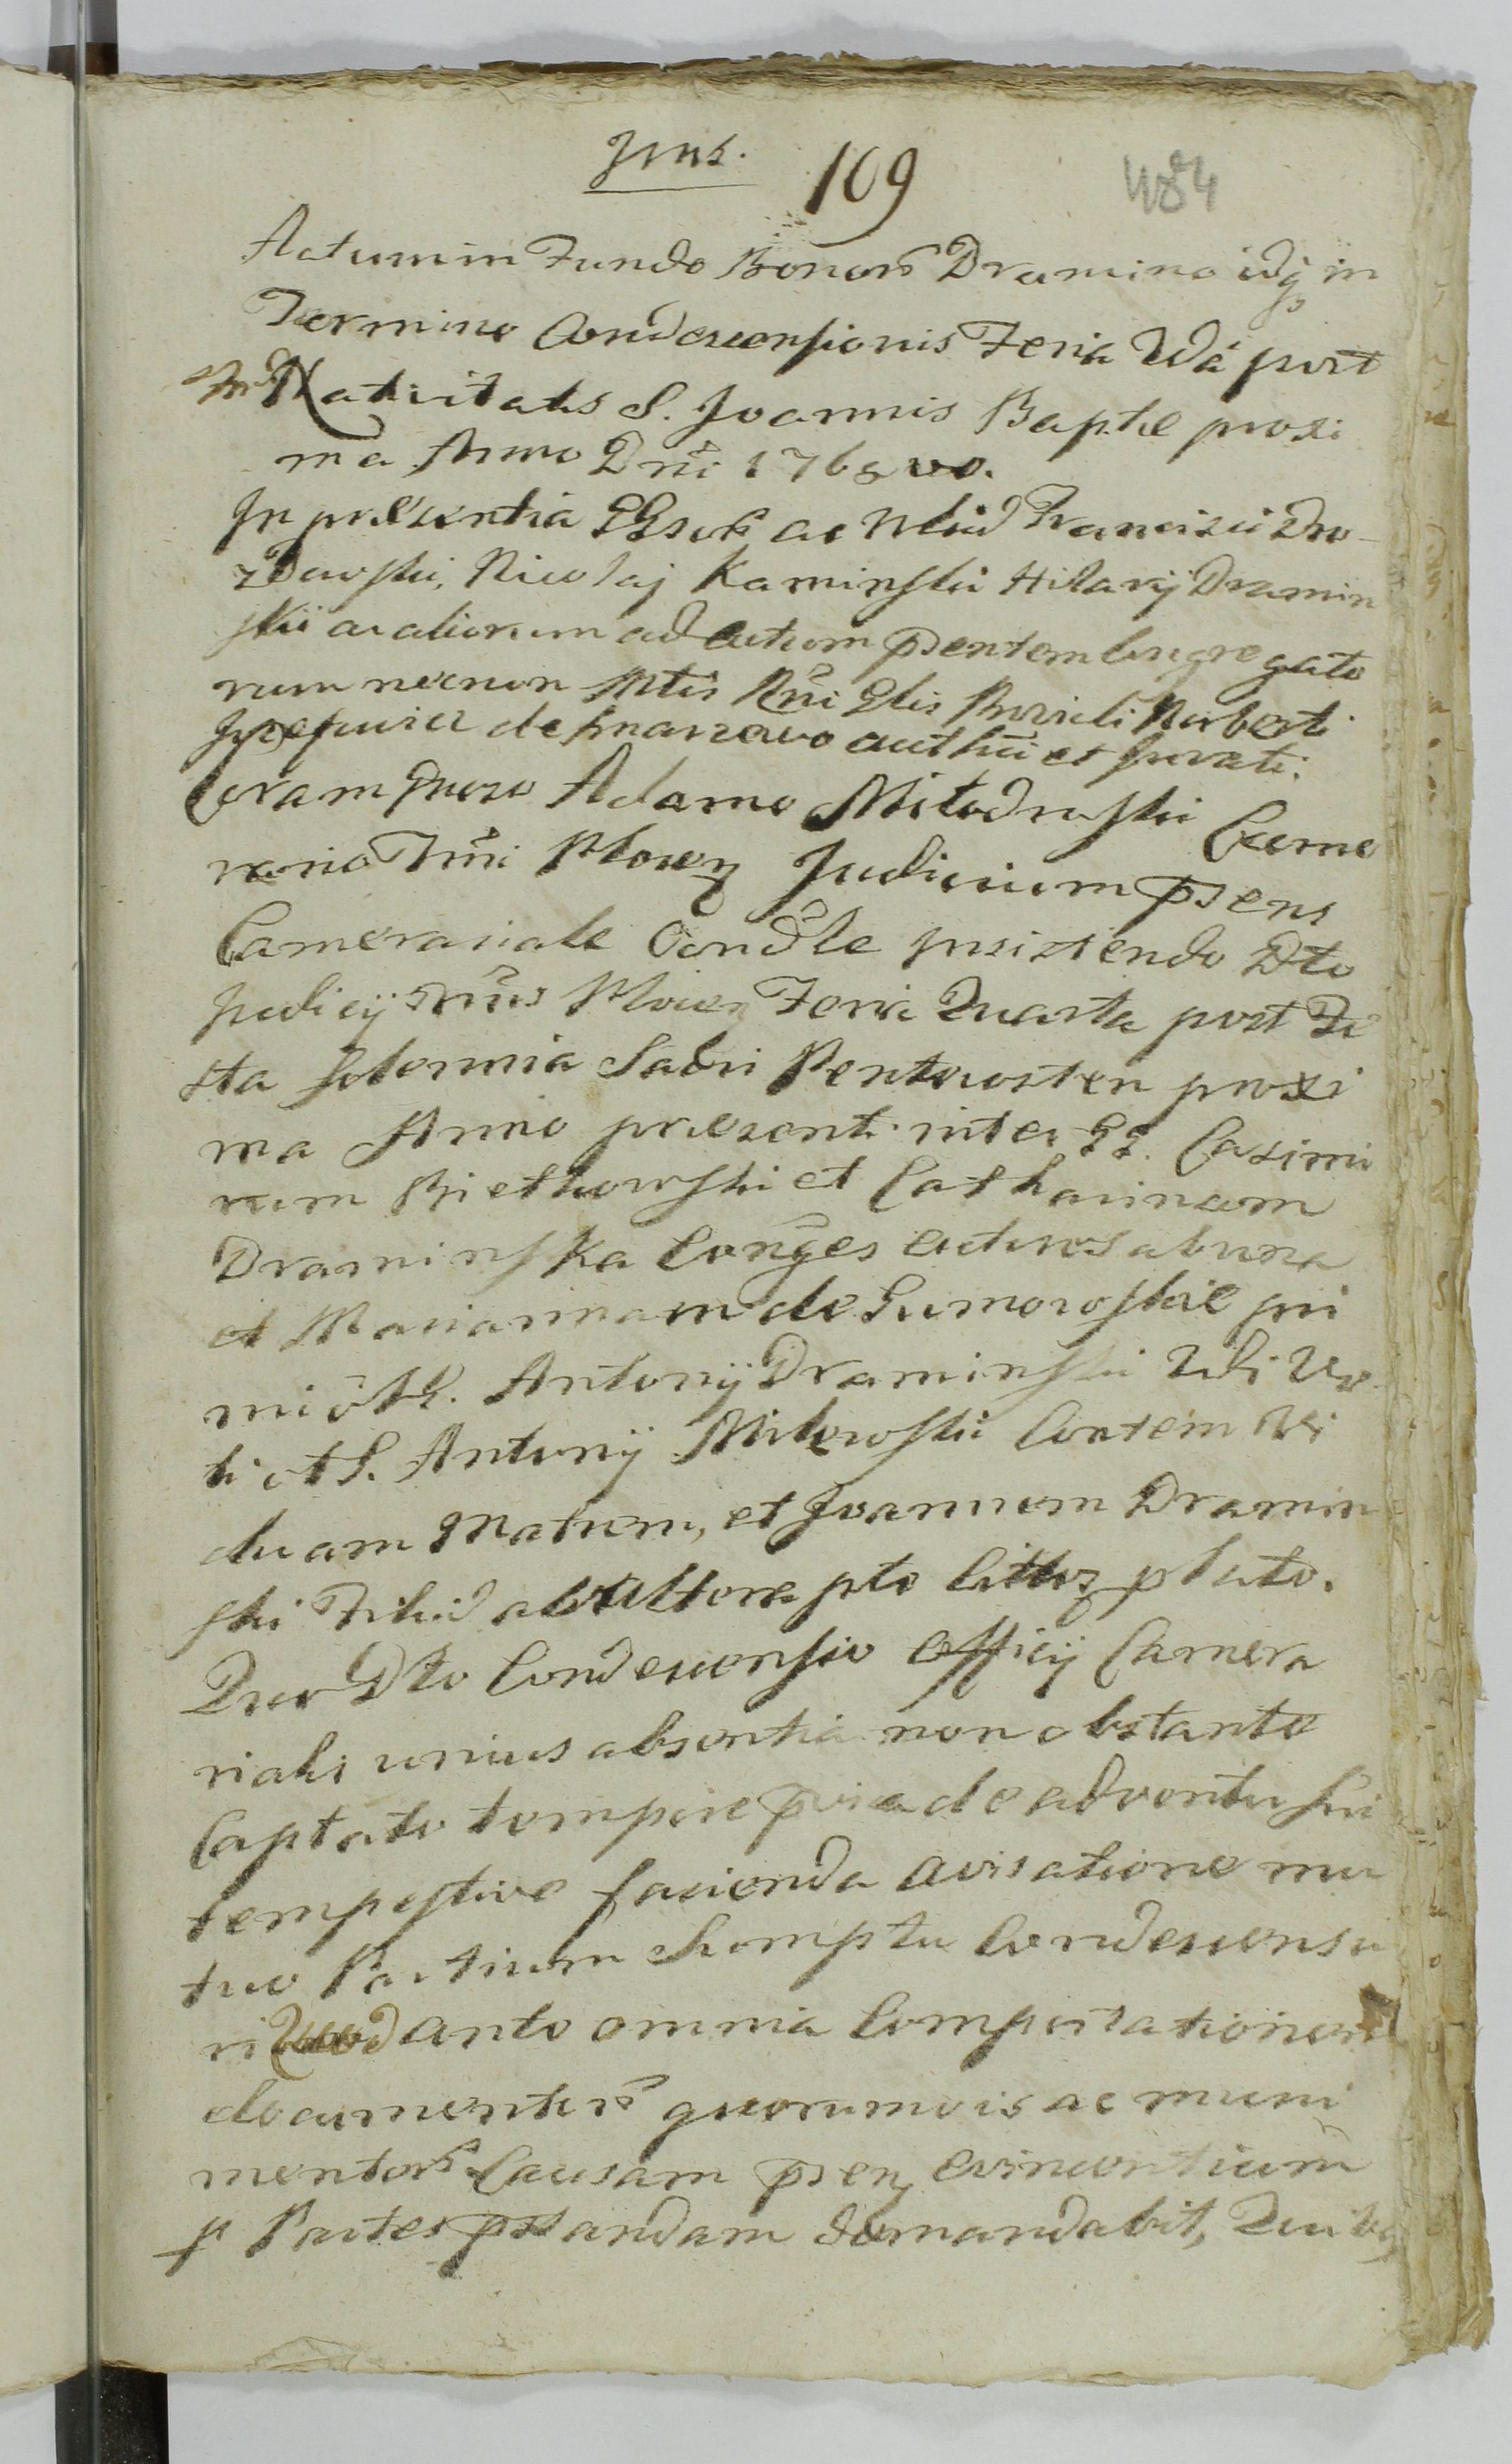 Jms.
169
484
Actum in Fundo Bonorũ Dramino idq̃ in
Termino Condescensionis Feria IIda post
Ftũ Nativitatis S. Joannis Baptæ proxi
ma Anno Dñi 1768vo.
In præsentia GGsorũ ac Nbliũ Francisci Dro-
zdowski, Nicolaj Kaminski Hilarij Dramin
skii ac aliorum ad actum pñsentem congregato
rum necnon Mtis Rñi Glis Pozieli Norberti
de authci et Jurati.
Coram Gnoso Adamo Milodroski Came
rario Trñi Plocen Judicium pñsens
Camerariale Condle insistendo Dto
Judicij Trñis Plocen Feria Quarta post Fe
sta Solennia Sacri Pentecosten proxi
ma Anno præsenti inter GG. Casimi
rum Bietkowski et Catharinam
Draminska Conjges actores ab una
et Mariannam de Gumowskie pri
mi ots. Antonij Draminski IIdi Vo
ti ot S. Antonij Milewski Contem Vi
duam Matrem, et Joannem Dramin
ski Filiũ ab altera pte Cittos plato.
Quo Dto Condescensio officij Camera
rialis unius absentia non obstante
Captato tempore pvia de adventu sui
tempestive facienda avisatione mu
tuo Partium Sumptu Condescensu
ri ante omnia Comportationem
documentorũ quorumvis ac muni
mentorũ Causam psen evincentium
p Partes pstandam demandabit, Quibq